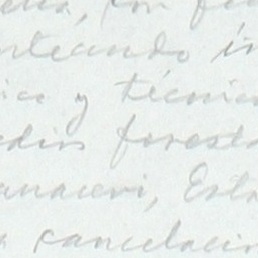 , con f
orteando in
ica y técnica
edios foresta
anaceri, Esta
a cancelación